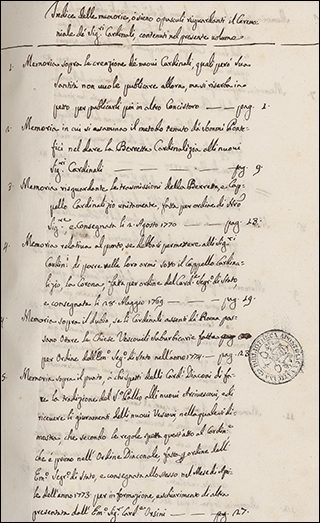 Indice delle memorie, o siano opuscoli riguardanti il Ceremo-
niale de' Sig.ri Cardinali, contenuti nel presente volume.
1. Memoria sopra la creazione de' nuovi Cardinali, quali però Sua
Santità non vuole publicare allora, ma si riserba in
peto per publicarli poi in altro Concistoro — pag. 1.
2. Memoria, in cui si esaminano il metodo tenuto da' Sommi Ponte-
fici nel dare la Berretta Cardinalizia alli nuovi
Sig.ri Cardinali — pag. 9.
3. Memoria risguardante la trasmissione della Berretta, e Cap-
pello Cardinalizio unitamente, fatta per ordine di Nro
Sig.re e consegnata li 2. Agosto 1770 — pag. 18.
4. Memoria relativa al punto, se debbasi permettere alli Sig.ri
Cardin.i di porre nelle loro armi sotto il Cappello cardina-
lizio, la Corona, fatta per ordine del Card.le Segr.o di Stato,
e consegnata li 28. Maggio 1769 — pag. 19.
4. Memoria sopra il dubio, se li Cardinali assenti da Roma pos-
sano ottare le Chiese Vescovili Suburbicarie, fatta
per Ordine dell'Em.o Sig.r di Stato nell'anno 1774 — pag. 123
5. Memoria sopra il punto, a chi spetti delli Card.i Diaconi di fa-
re la tradizione del S. Pallio alli nuovi Arcivescovi, e di
ricevere li giuramenti dalli nuovi Vescovi nella quale si di-
mostra che secondo le regole spetta quest'atto al Cardin.e
che è primo nell'Ordine Diaconale, fatta p. ordine dell'
Em.o Segr.o di Stato, e consegnata allo stesso nel Mese di Apri-
le dell'anno 1773. per informazione, e scioglimento di altra
presentata dall'Em.o Sig.r Card.le Orsini — pag. 127.